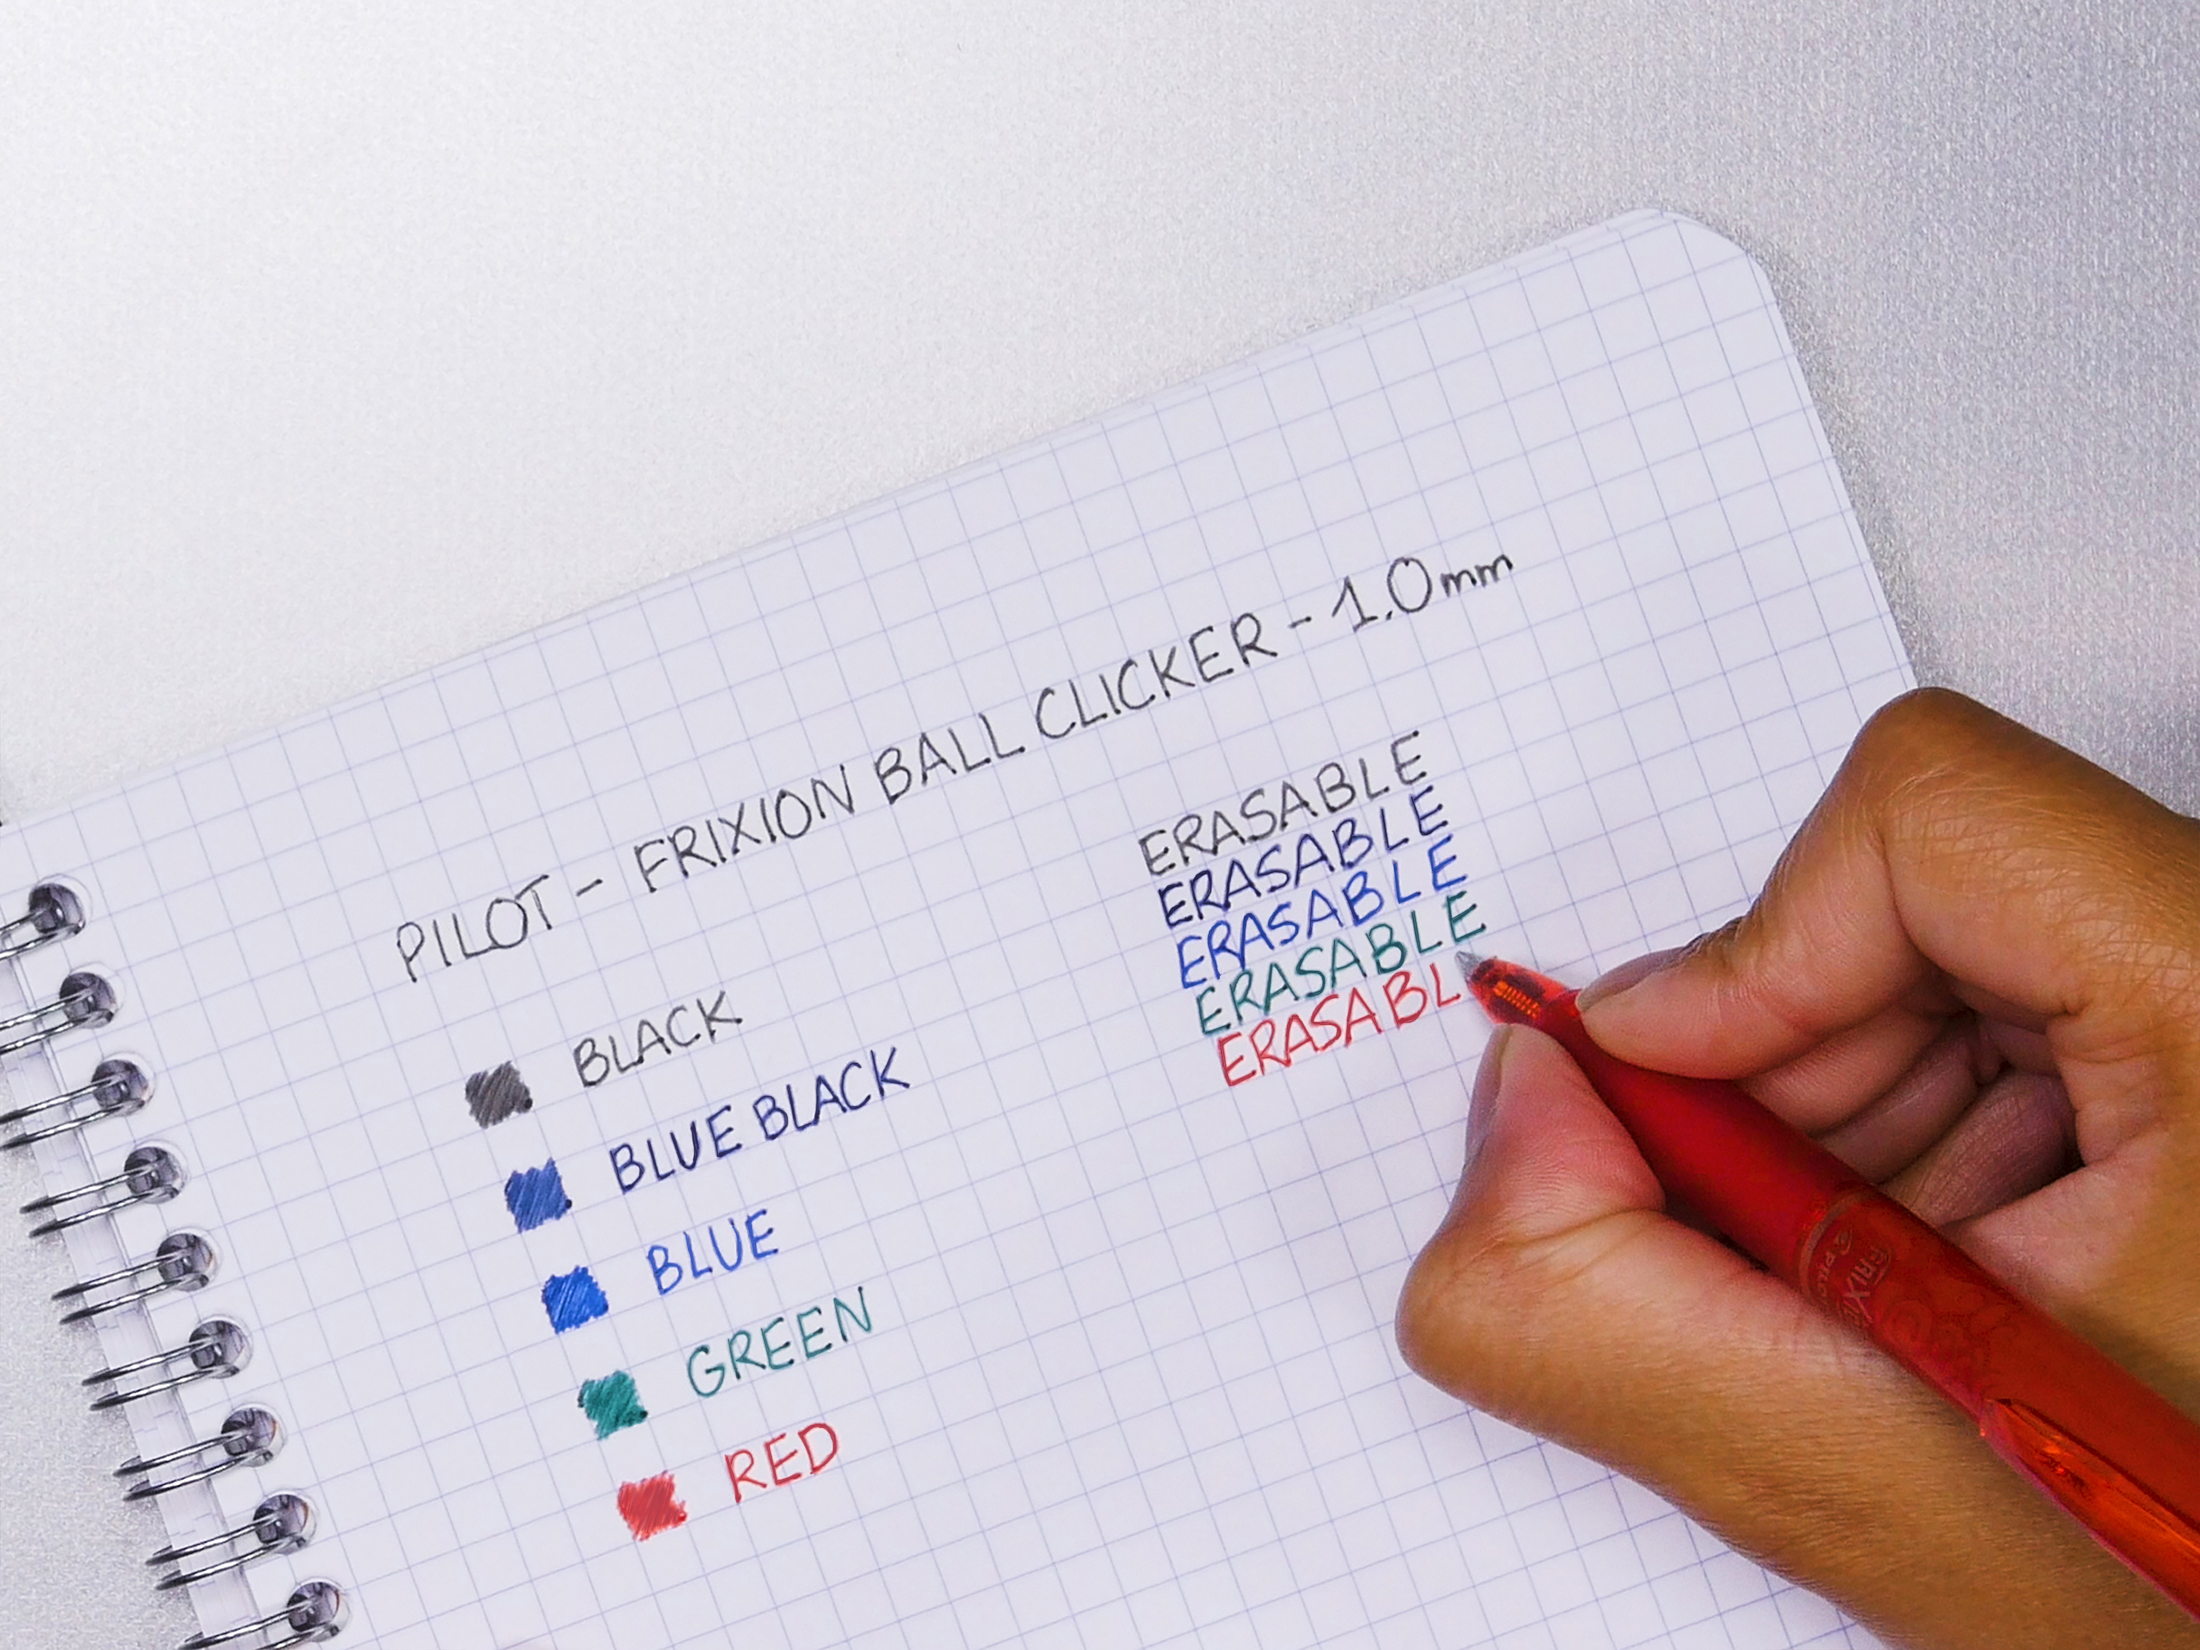 PILOT - FRIXION BALL CLICKER - 1.0mm
BLACK
BLUE BLACK
BLUE
GREEN
RED
ERASABLE
ERASABLE
ERASABLE
ERASABLE
ERASABL